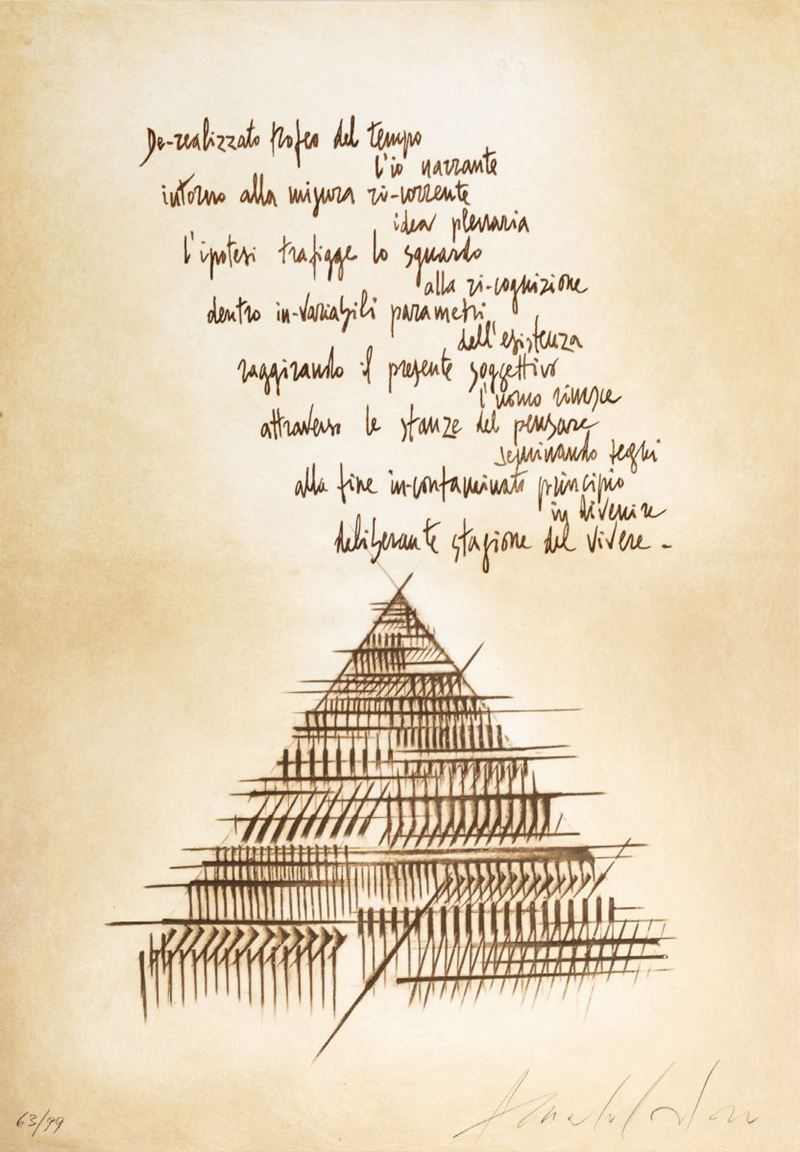 De-realizzato trofeo del tempo
l'io narrante
intorno alla misura ri-corrente
idea plenaria
l'ipotesi trafigge lo sguardo
alla ri-cognizione
dentro in-variabili parametri
dell'esistenza
raggirando il presente soggettivo
l'uomo riesce
attraverso le stanze del pensare
seminando segni
alla fine in-contaminato principio
in divenire
deliberante stagione del vivere -
63/99